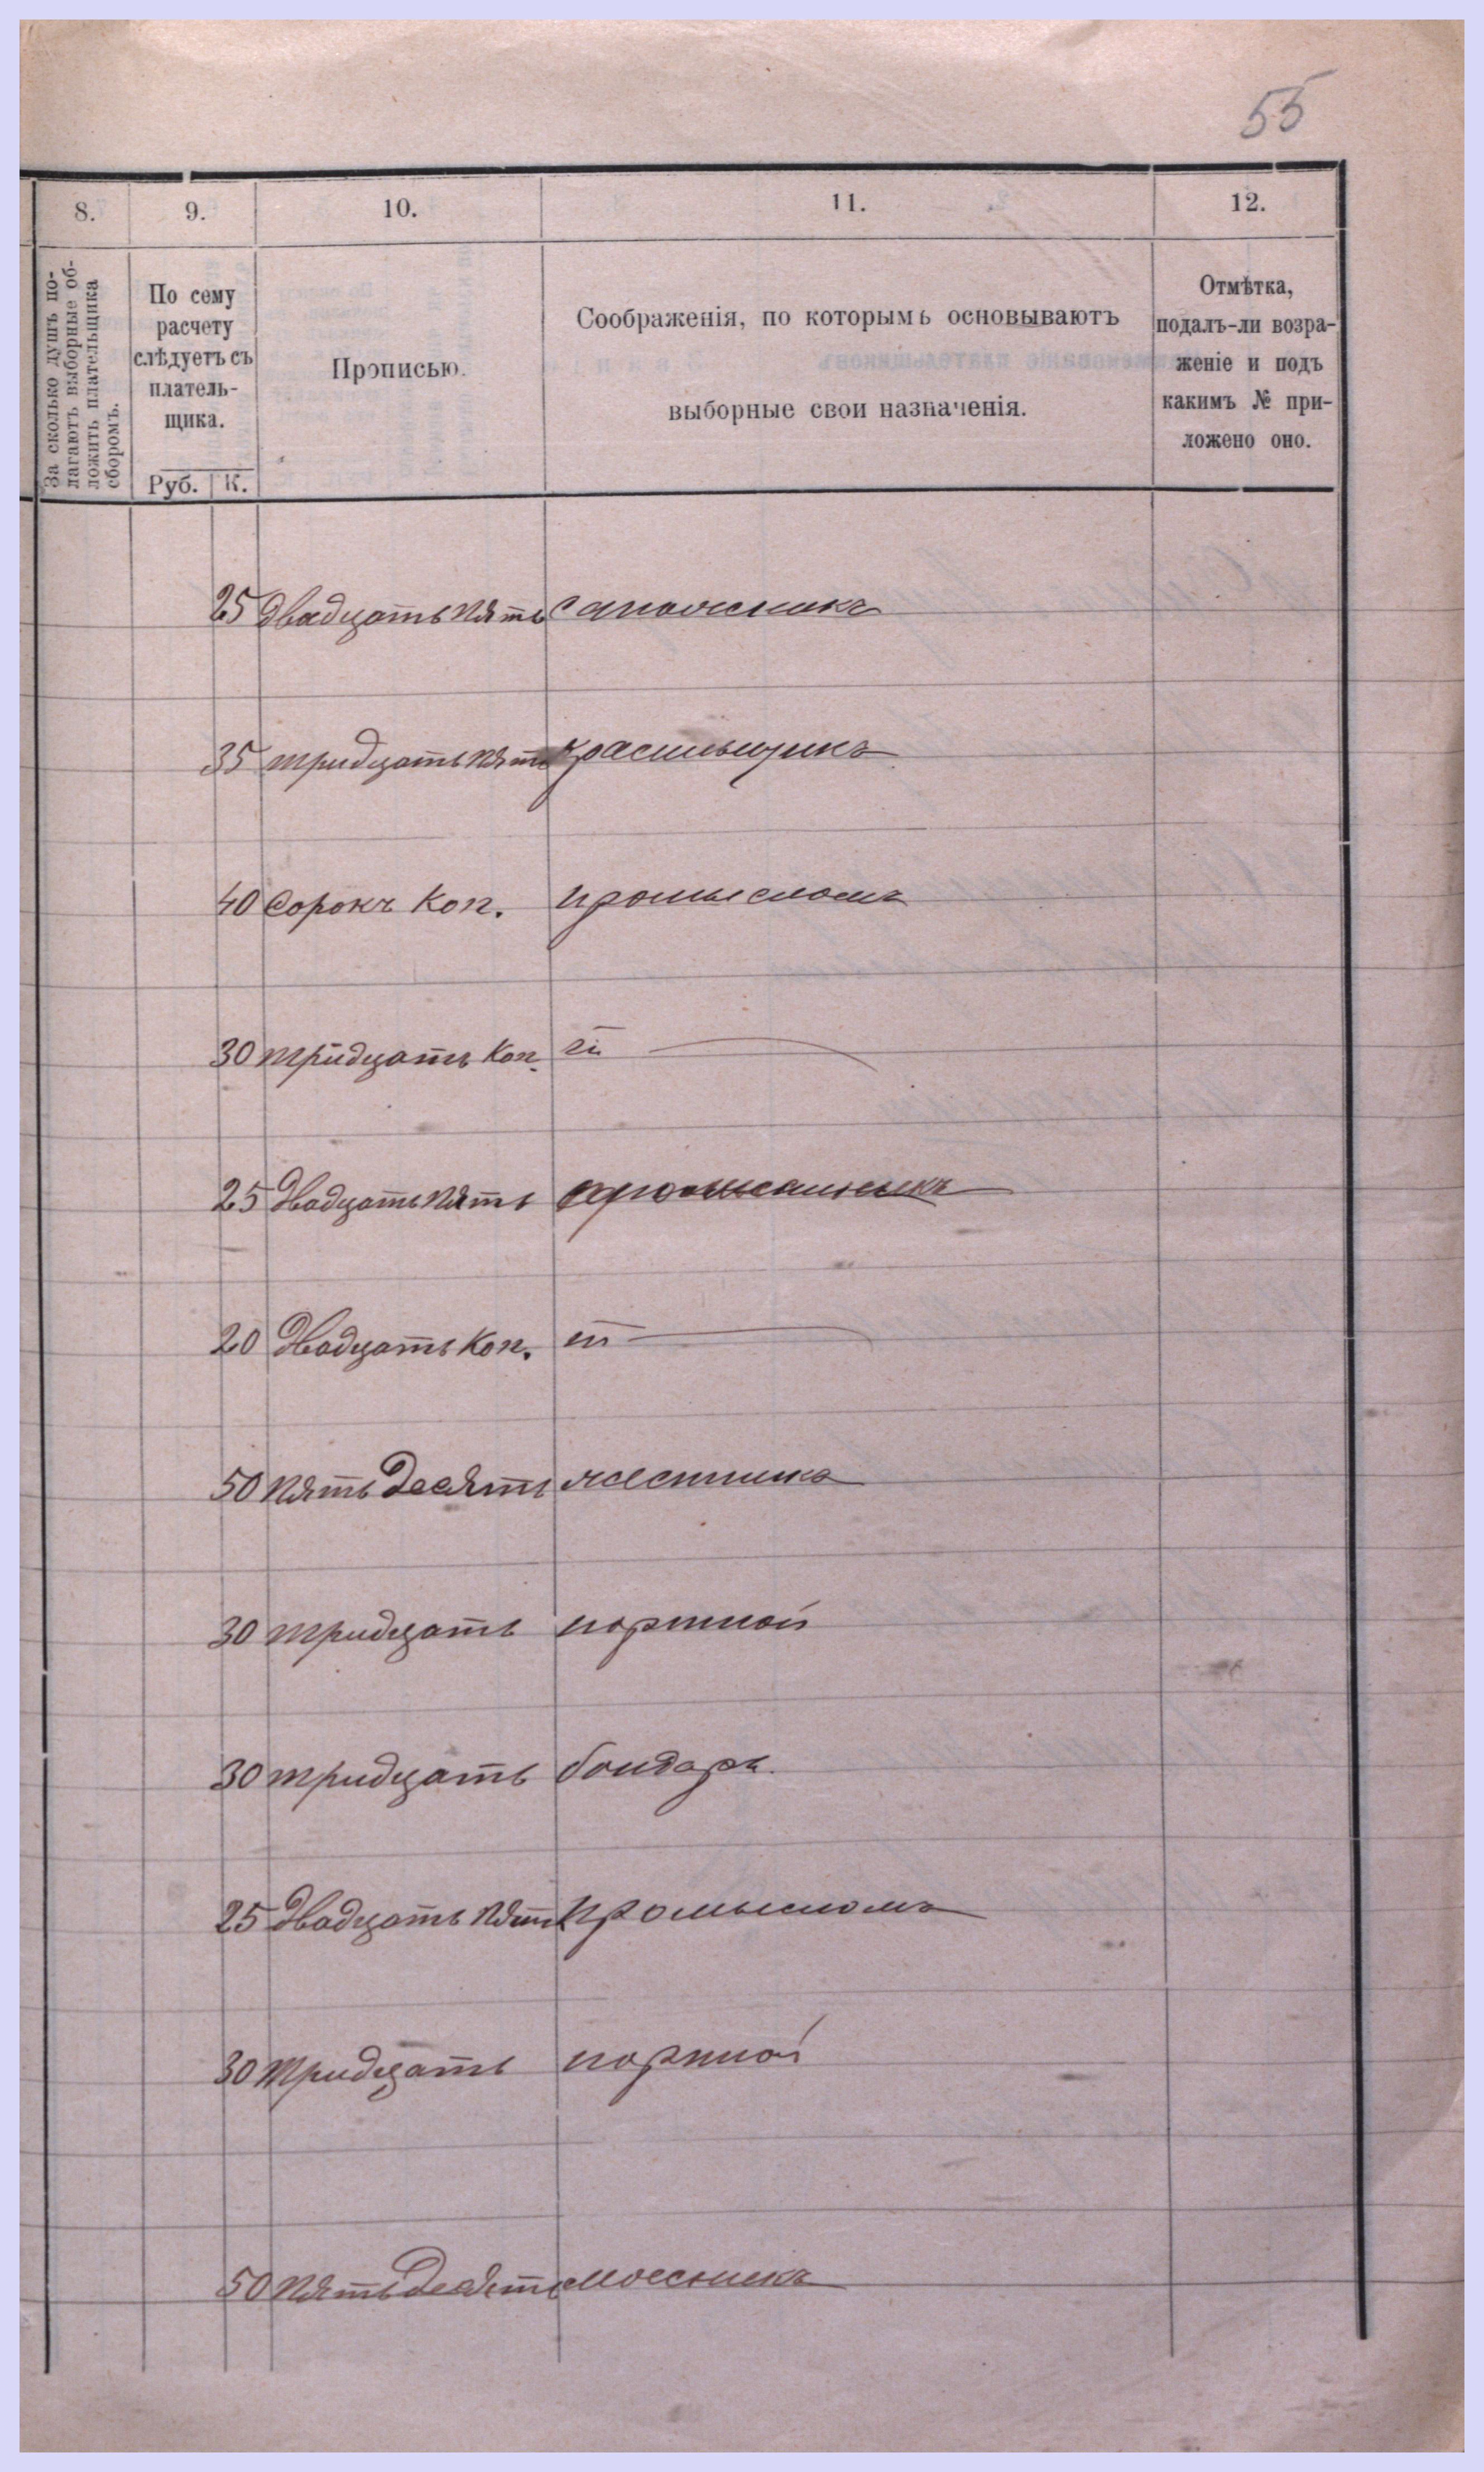 55
8. 9. 10. 11. 12.
За сколько душъ по-
лагаютъ выборные об-
ложить плательщика
сборомъ.
По сему
расчету
слѣдуетъ съ
платель-
щика.
Руб. К.
Прописью.
Соображенія, по которымъ основываютъ
выборные свои назначенія.
Отмѣтка,
подалъ-ли возра-
женіе и подъ
какимъ № при-
ложено оно.
25 двадцать пять сапожникъ
35 тридцать пять красильщикъ
40 Сорокъ коп. промысломъ
30 тридцать коп.
25 двадцать пять
20 двадцать коп.
50 пять десять жестник
30 тридцать портной
30 тридцать бондарь.
25 двадцать пять промысломъ
30 тридцать портной
50 пять десять